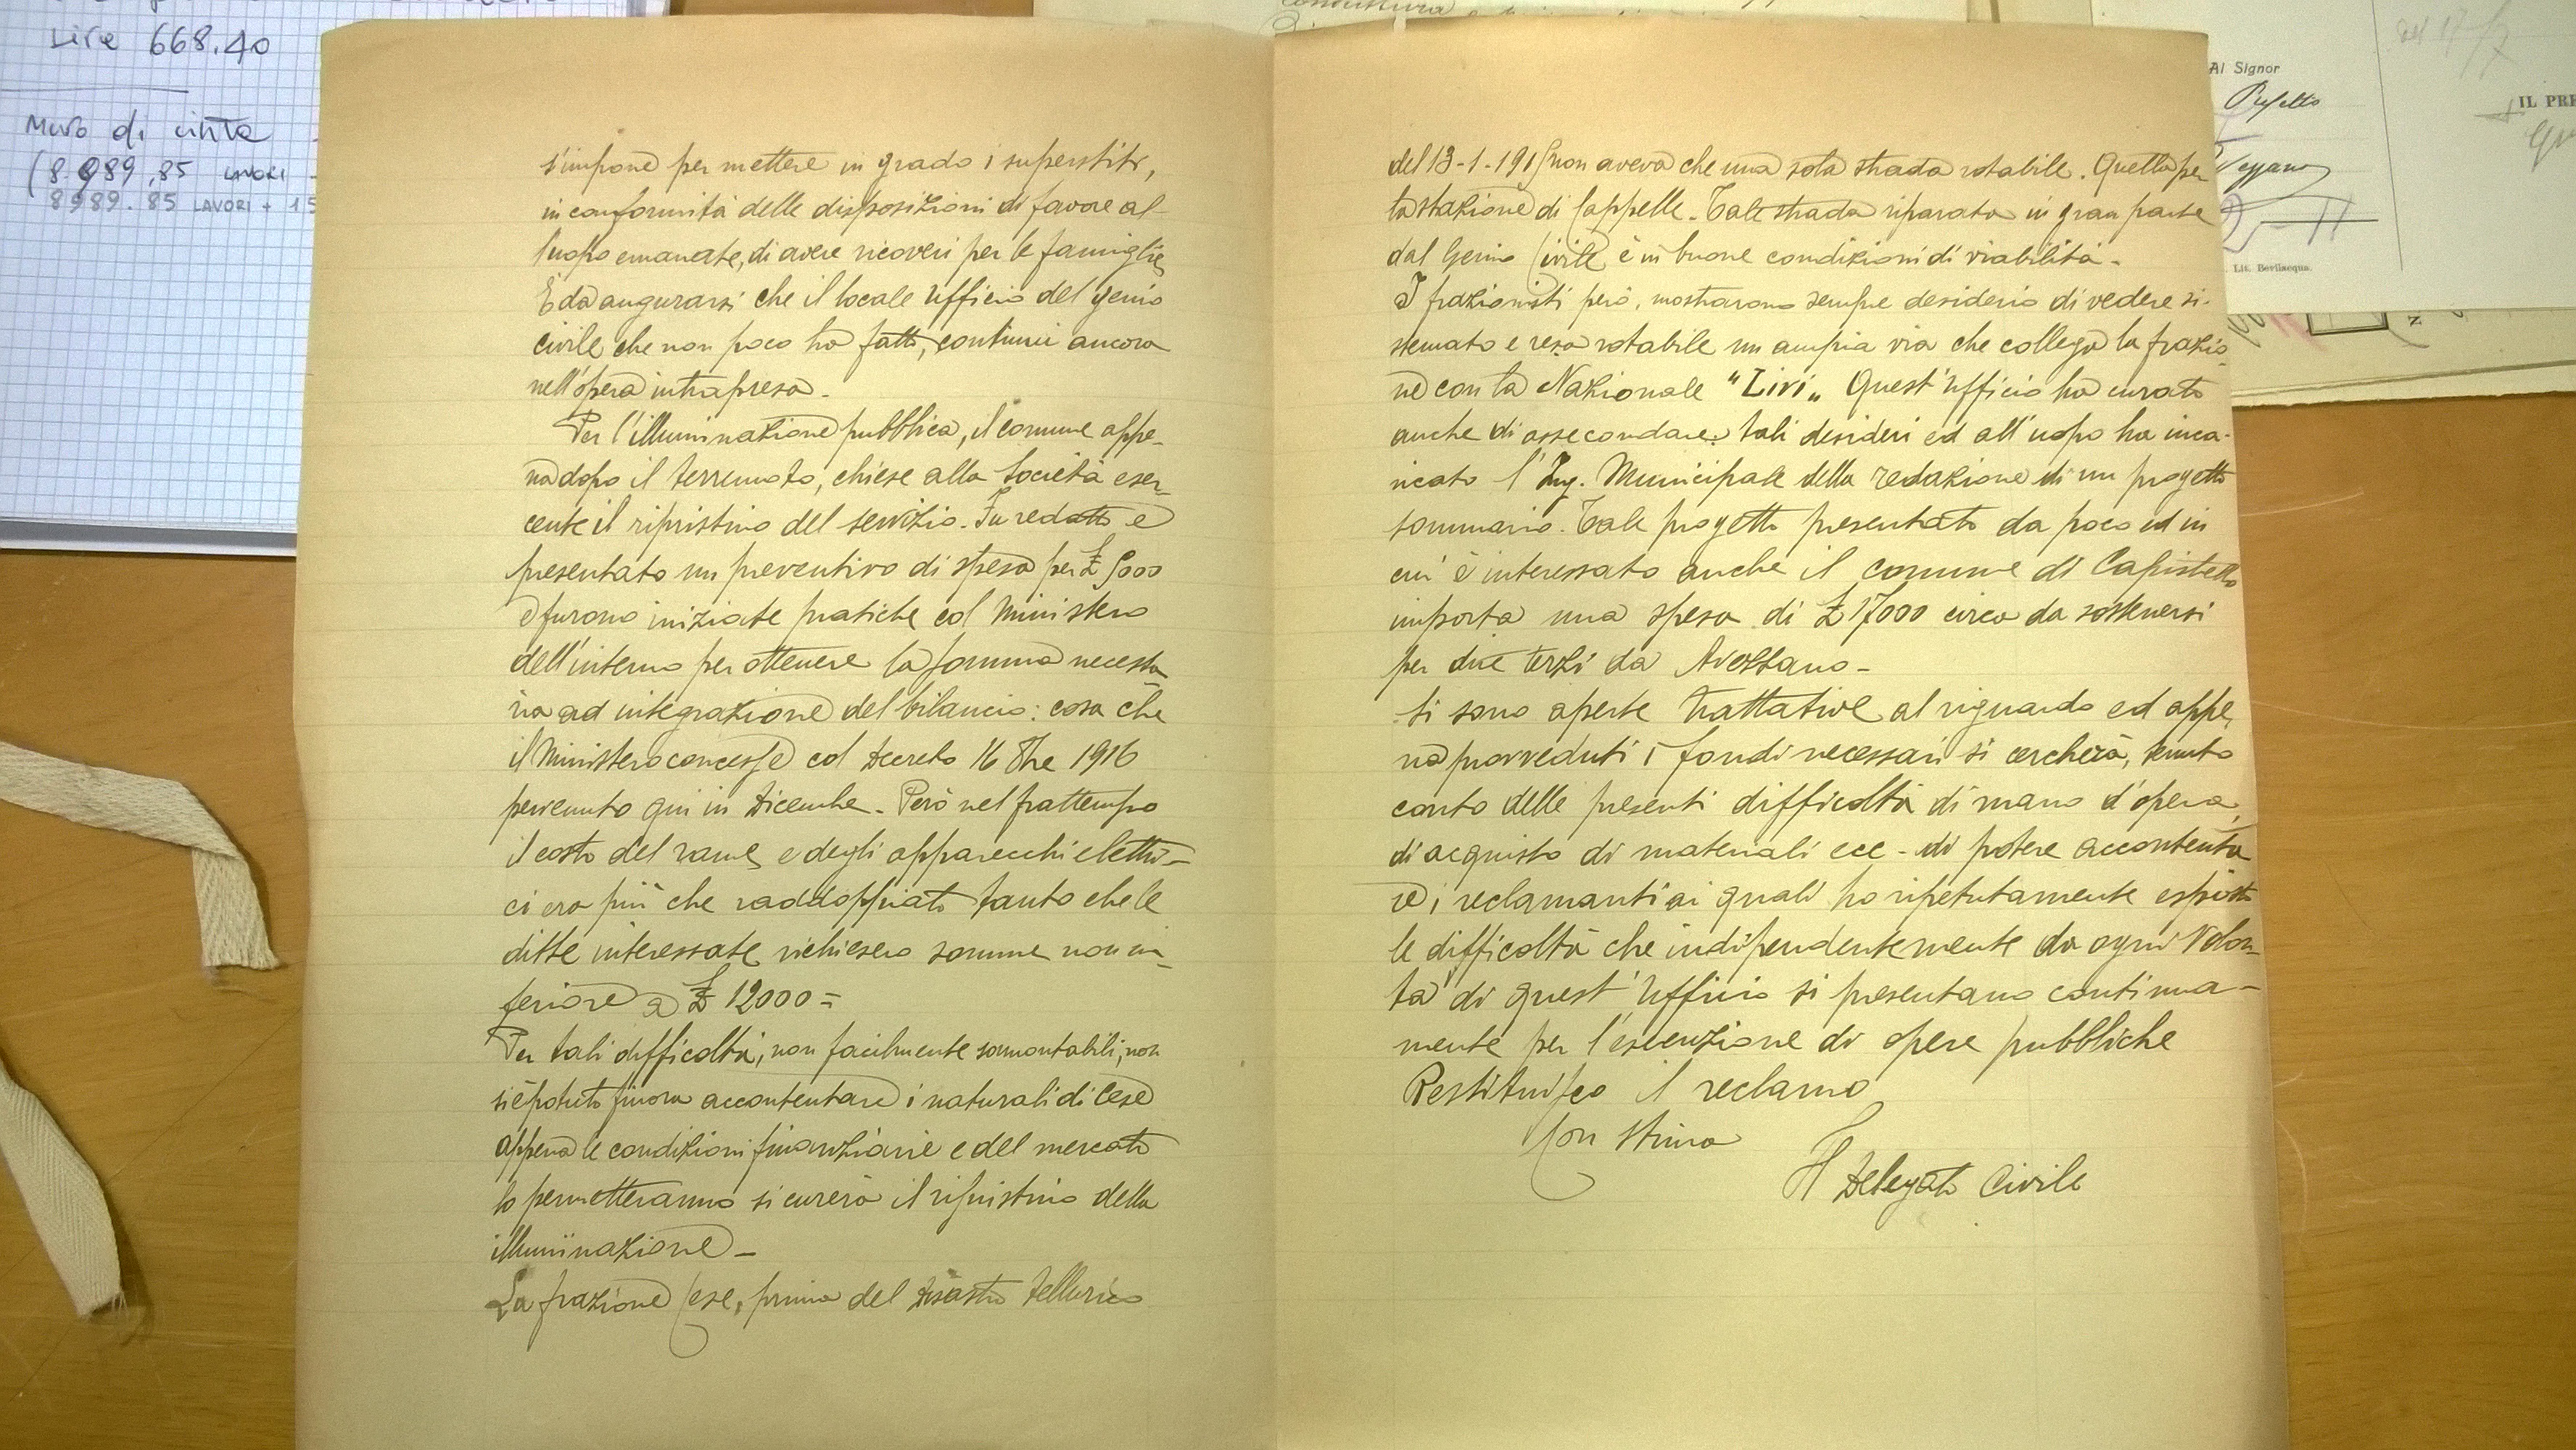 Lire 668.40
Muro di cinta
(8989,85 LAVORI -
8989.85 LAVORI + 15
s'impone per mettere in grado i superstiti,
in conformità delle disposizioni di favore al-
l'uopo emanate, di avere ricoveri per le famiglie
È da augurarsi che il locale ufficio del genio
civile che non poco ha fatto, continui ancora
nell'opera intrapresa.
Per l'illuminazione pubblica, il comune appe-
na dopo il terremoto, chiese alla Società eser-
cente il ripristino del servizio. Fu redatto e
presentato un preventivo di spesa per £ 5000
e furono iniziate pratiche col Ministero
dell'interno per ottenere la somma necessa
ria ad integrazione del bilancio: cosa che
il Ministero concesse col Decreto 16 8bre 1916
pervenuto qui in Dicembre. Però nel frattempo
il costo del rame e degli apparecchi elettri-
ci era più che raddoppiato tanto che le
ditte interessate richiesero somme non in-
feriore a £ 12000=
Per tali difficoltà, non facilmente sormontabili, non
si è potuto finora accontentare i naturali di Cese
appena le condizioni finanziarie e del mercato
lo permetteranno si curerà il ripristino della
illuminazione -
La frazione Cese, prima del disastro tellurico
del 13-1-1915 non aveva che una sola strada rotabile. Quella per
la stazione di Cappelle. Tale strada riparata in gran parte
dal Genio Civile è in buone condizioni di viabilità.
I frazionisti però, mostrarono sempre desiderio di vedere si-
stemato e reso rotabile un ampia via che collega la frazio
ne con la Nazionale "Liri„ Quest'ufficio ha curato
anche di assecondare tali desideri ed all'uopo ha inca-
ricato l'Ing. Municipale della redazione di un progetto
sommario. Tale progetto presentato da poco ed in
cui è interessato anche il comune di Capistrello
importa una spesa di £ 17000 circa da sostenersi
per due terzi da Avezzano -
Si sono aperte trattative al riguardo ed appe
na provveduti i fondi necessari si cercherà, tenuto
conto delle presenti difficoltà di mano d'opera,
di acquisto di materiali ecc - di potere accontenta
re i reclamanti ai quali ho ripetutamente esposto
le difficoltà che indipendentemente da ogni volon
tà di quest'Ufficio si presentano continua-
mente per l'esecuzione di opere pubbliche
Restituisco il reclamo
Con stima
Il Delegato Civile
Al Signor
Prefetto
Lit. Bevilacqua.
IL PRE